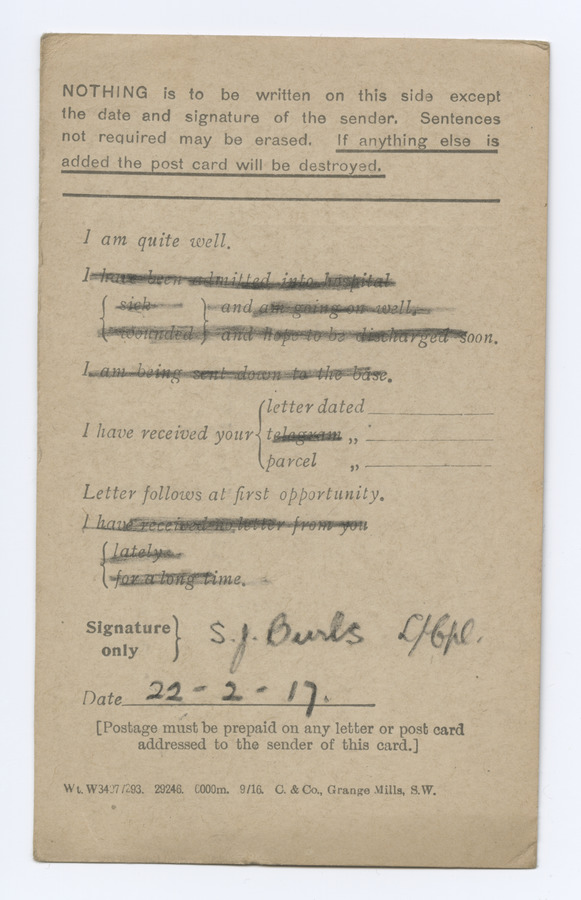 NOTHING is to be written on this side except
the date and signature of the sender. Sentences
not required may be erased. If anything else is
added the post card will be destroyed.
I am quite well.
I have been admitted into hospital
{ sick } and am going on well.
{ wounded } and hope to be discharged soon.
I am being sent down to the base.
I have received your { letter dated
telegram „
parcel „
Letter follows at first opportunity.
I have received no letter from you
{ lately
{ for a long time.
Signature only } S. J. Burls L/Cpl.
Date 22 - 2 - 17.
[Postage must be prepaid on any letter or post card
addressed to the sender of this card.]
Wt. 29246. 9/16. C. & Co., Grange Mills, S.W.